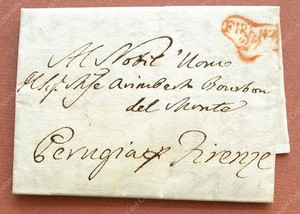 FIRENZE
Al Nobil Uomo
Il Sig. Mse Arimberto Bourbon
del Monte
Perugia p Firenze